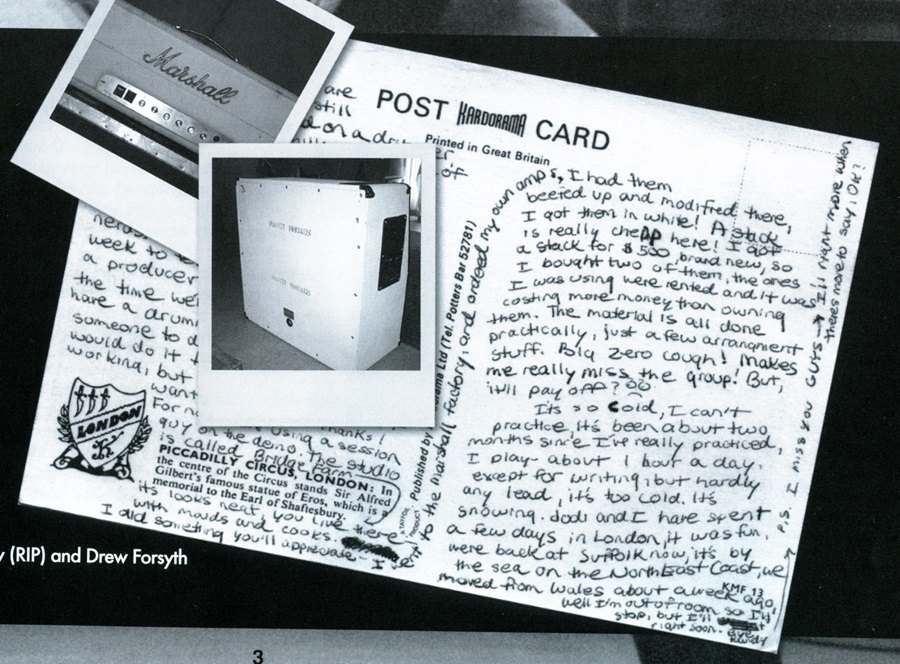 Marshall
are
still
POST KARDORAMA CARD
Printed in Great Britain
of
week to
a producer
the time we
have a drum
someone to d
would do it
working, but
want
For n
thanks!
using a session
guy on the demo. The studio
is called Bridge Farm
LONDON
PICCADILLY CIRCUS, LONDON: In
the centre of the Circus stands Sir Alfred
Gilbert's famous statue of Eros, which is a
memorial to the Earl of Shaftesbury.
its looks neat, you live there
with maids and cooks.
I did something you'll appreciate. I
RANDY RHOADS
RANDY RHOADS
Published by Kardorama Ltd (Tel. Potters Bar 52781)
to the marshall factory, and ordered my own
amps, I had them
beefed up and modified there,
I got them in white! A stack
is really cheap here! I got
a stack for $500, brand new, so
I bought two of them, the ones
I was using were rented and it was
costing more money than owning
them. The material is all done
practically, just a few arrangment
stuff. Big zero cough! Makes
me really miss the group! But,
it'll pay off?
Its so cold, I can't
practice, it's been about two
months since I've really practiced,
I play about 1 hour a day.
except for writing, but hardly
any lead, it's too cold. It's
snowing. Jodi and I have spent
a few days in London, it was fun.
were back at Suffolk now, it's by
the sea on the NorthEast Coast, we
moved from Wales about a week ago,
KMF 13
well I'm out of room so I'll
stop, but I'll
right soon.
Randy
P.S. I miss you GUYS → I'll right more when
theres more to say, OK?
(RIP) and Drew Forsyth
3